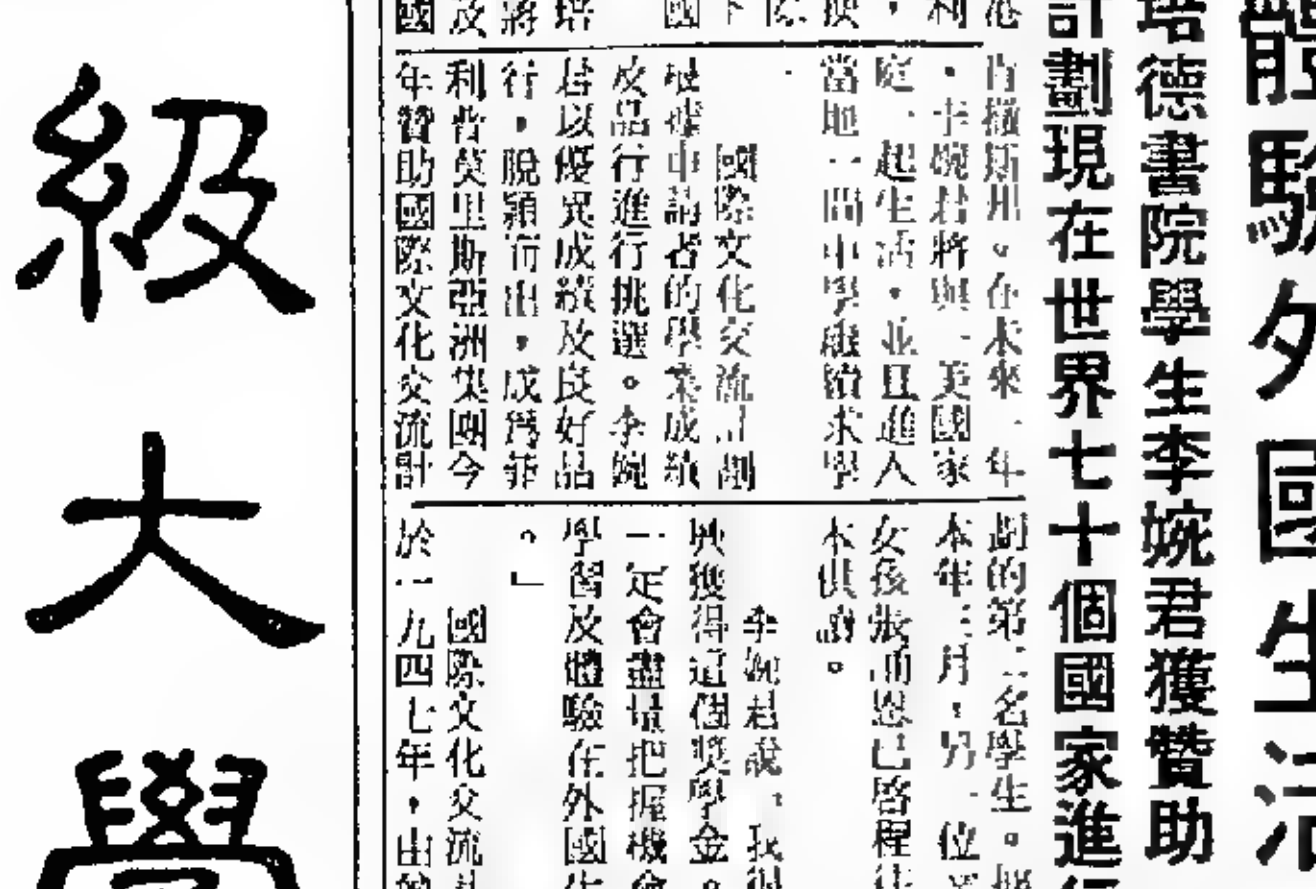 體驗外國生活
培德書院學生李婉君獲贊助
計劃現在世界七十個國家進行
港
利
,
換
際
下
國
培
將
及
國
肯薩斯州。在未來一年
,李婉君將與一美國家
庭一起生活,並且進入
當地一間中學繼續求學
國際文化交流計劃
根據申請者的學業成績
及品行進行挑選。李婉
君以優異成績及良好品
行,脫穎而出,成為菲
利普莫里斯亞洲集團今
年贊助國際文化交流計
劃的第二名學生。
本年三月,另一位
女孩張 恩已啓程往
本供讀。
李婉君說,我很
興獲得這個獎學金。
一定會盡量把握機會
學習及體驗在外國生
。」
國際文化交流計
於一九四七年,由
級大學